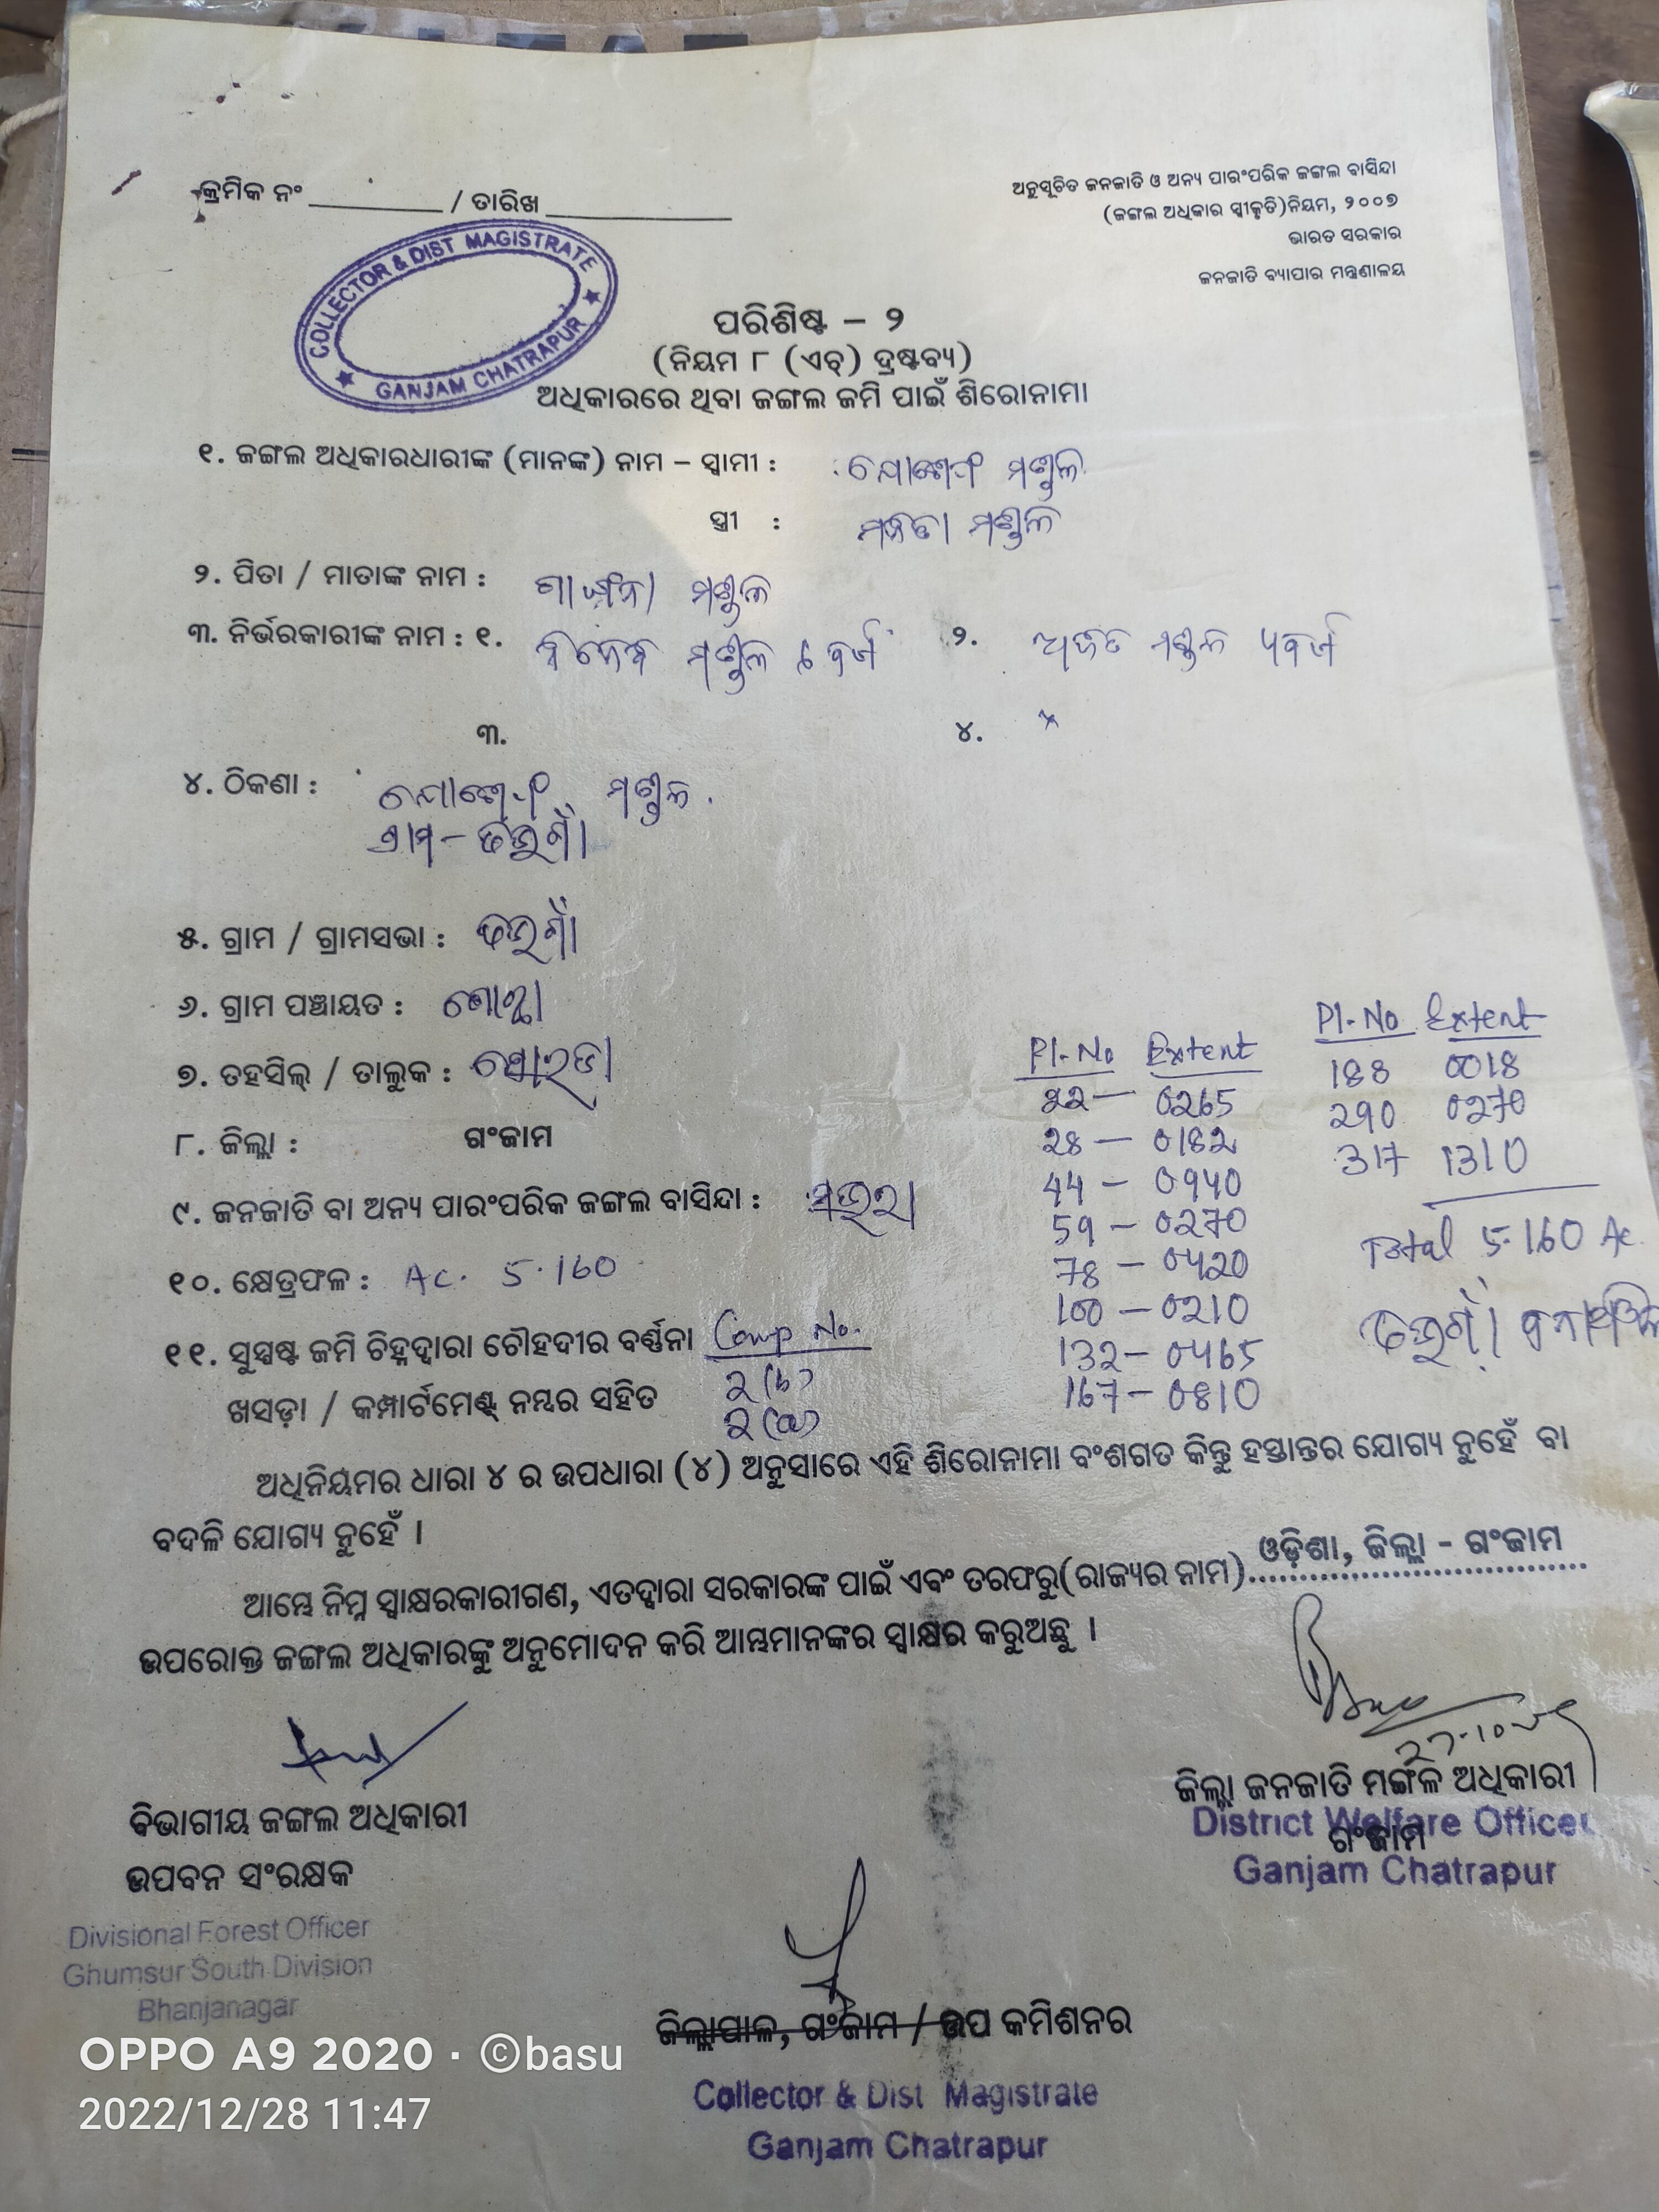 କ୍ରମିକ ନଂ ________ / ତାରିଖ ____________
ଅନୁସୂଚିତ ଜନଜାତି ଓ ଅନ୍ୟ ପାରଂପରିକ ଜଙ୍ଗଲ ବାସିନ୍ଦା
(ଜଙ୍ଗଲ ଅଧିକାର ସ୍ୱୀକୃତି)ନିୟମ, ୨୦୦୭
ଭାରତ ସରକାର
ଜନଜାତି ବ୍ୟାପାର ମନ୍ତ୍ରଣାଳୟ
COLLECTOR & DIST MAGISTRATE
GANJAM CHATRAPUR
ପରିଶିଷ୍ଟ – ୨
(ନିୟମ ୮ (ଏଚ୍) ଦ୍ରଷ୍ଟବ୍ୟ)
ଅଧିକାରରେ ଥିବା ଜଙ୍ଗଲ ଜମି ପାଇଁ ଶିରୋନାମା
୧. ଜଙ୍ଗଲ ଅଧିକାରଧାରୀଙ୍କ (ମାନଙ୍କ) ନାମ – ସ୍ୱାମୀ : ମଣ୍ଡଳ
ସ୍ତ୍ରୀ : ମଣ୍ଡଳ
୨. ପିତା / ମାତାଙ୍କ ନାମ : ମଣ୍ଡଳ
୩. ନିର୍ଭରକାରୀଙ୍କ ନାମ : ୧. ମଣ୍ଡଳ ୨. ମଣ୍ଡଳ
୩. ୪. ×
୪. ଠିକଣା : ମଣ୍ଡଳ
ଗ୍ରାମ –
୫. ଗ୍ରାମ / ଗ୍ରାମସଭା :
୬. ଗ୍ରାମ ପଞ୍ଚାୟତ :
୭. ତହସିଲ୍ / ତାଲୁକ : ସୋରଡା
୮. ଜିଲ୍ଲା : ଗଂଜାମ
୯. ଜନଜାତି ବା ଅନ୍ୟ ପାରଂପରିକ ଜଙ୍ଗଲ ବାସିନ୍ଦା : ସଉରା
୧୦. କ୍ଷେତ୍ରଫଳ : Ac. 5.160
୧୧. ସୁସ୍ପଷ୍ଟ ଜମି ଚିହ୍ନଦ୍ୱାରା ଚୌହଦୀର ବର୍ଣ୍ଣନା Comp No.
ଖସଡ଼ା / କମ୍ପାର୍ଟମେଣ୍ଟ୍ ନମ୍ବର ସହିତ 2(b)
2(a)
Pl-No Extent
0265
28 – 0182
44 –
59 – 0270
78 –
100 – 0210
132 –
167 – 0810
Pl-No Extent
188 0018
290 0270
317 1310
Total 5.160 Ac.
ଅଧିନିୟମର ଧାରା ୪ ର ଉପଧାରା (୪) ଅନୁସାରେ ଏହି ଶିରୋନାମା ବଂଶଗତ କିନ୍ତୁ ହସ୍ତାନ୍ତର ଯୋଗ୍ୟ ନୁହେଁ ବା
ବଦଳି ଯୋଗ୍ୟ ନୁହେଁ ।
ଆମ୍ଭେ ନିମ୍ନ ସ୍ୱାକ୍ଷରକାରୀଗଣ, ଏତଦ୍ୱାରା ସରକାରଙ୍କ ପାଇଁ ଏବଂ ତରଫରୁ(ରାଜ୍ୟର ନାମ) ଓଡ଼ିଶା, ଜିଲ୍ଲା - ଗଂଜାମ
ଉପରୋକ୍ତ ଜଙ୍ଗଲ ଅଧିକାରଙ୍କୁ ଅନୁମୋଦନ କରି ଆମ୍ଭମାନଙ୍କର ସ୍ୱାକ୍ଷର କରୁଅଛୁ ।
ଜିଲ୍ଲା ଜନଜାତି ମଙ୍ଗଳ ଅଧିକାରୀ
ଗଂଜାମ
District Welfare Officer
Ganjam Chatrapur
ବିଭାଗୀୟ ଜଙ୍ଗଲ ଅଧିକାରୀ
ଉପବନ ସଂରକ୍ଷକ
Divisional Forest Officer
Ghumsur South Division
Bhanjanagar
ଜିଲ୍ଲାପାଳ, ଗଂଜାମ / ଉପ କମିଶନର
Collector & Dist Magistrate
Ganjam Chatrapur
OPPO A9 2020 · ©basu
2022/12/28 11:47